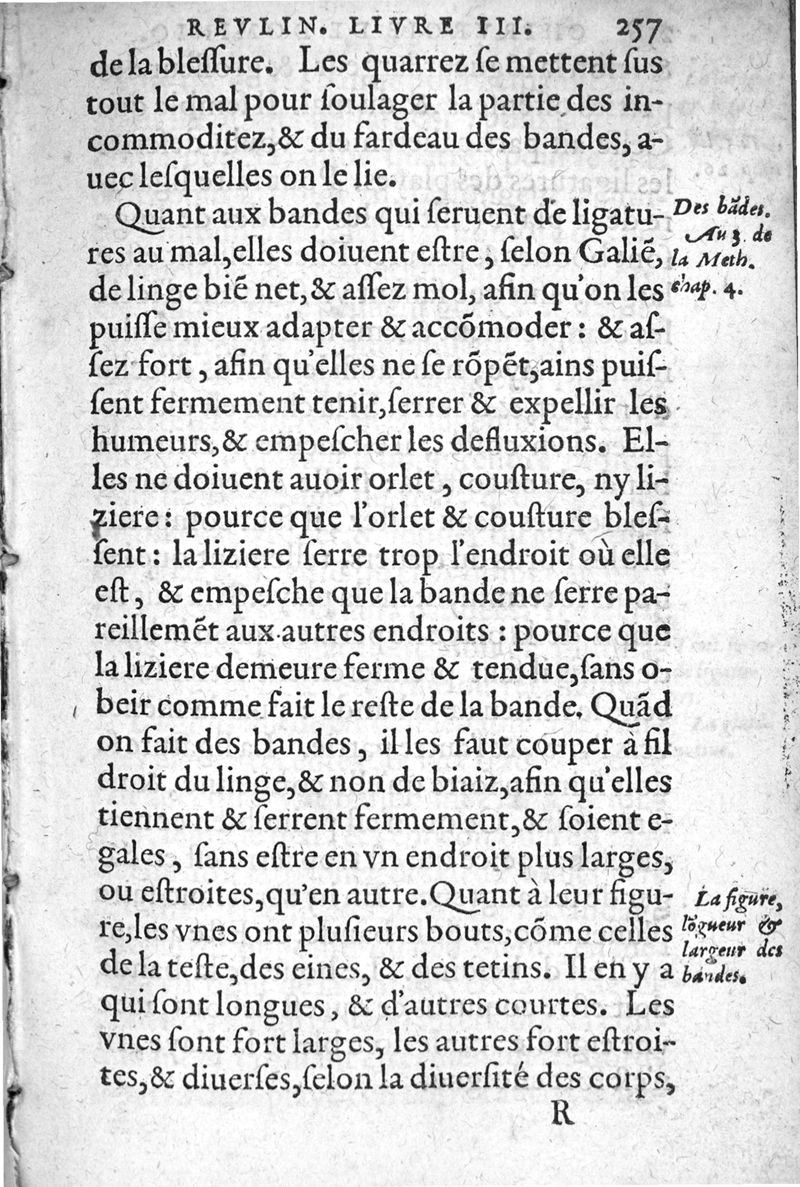 REVLIN. LIVRE III. 257
de la bleſſure. Les quarrez ſe mettent ſus
tout le mal pour ſoulager la partie des in-
commoditez,& du fardeau des bandes, a-
uec leſquelles on le lie.
Quant aux bandes qui ſeruent de ligatu-
res au mal,elles doiuent eſtre, ſelon Galiẽ,
de linge biẽ net,& aſſez mol, afin qu'on les
puiſſe mieux adapter & accõmoder: & aſ-
ſez fort, afin qu'elles ne ſe rõpẽt,ains puiſ-
ſent fermement tenir,ſerrer & expellir les
humeurs,& empeſcher les defluxions. El-
les ne doiuent auoir orlet, couſture, ny li-
ziere: pource que l'orlet & couſture bleſ-
ſent: la liziere ſerre trop l'endroit où elle
eſt, & empeſche que la bande ne ſerre pa-
reillemẽt aux autres endroits: pource que
la liziere demeure ferme & tendue,ſans o-
beir comme fait le reſte de la bande. Quãd
on fait des bandes, il les faut couper à fil
droit du linge,& non de biaiz,afin qu'elles
tiennent & ſerrent fermement,& ſoient e-
gales, ſans eſtre en vn endroit plus larges,
ou eſtroites,qu'en autre. Quant à leur figu-
re,les vnes ont pluſieurs bouts,cõme celles
de la teſte,des eines, & des tetins. Il en y a
qui ſont longues, & d'autres courtes. Les
vnes ſont fort larges, les autres fort eſtroi-
tes,& diuerſes,ſelon la diuerſité des corps,
R
Des bãdes.
Au 3. de
la Meth.
chap. 4.
La figure,
lõgueur &
largeur des
bandes.